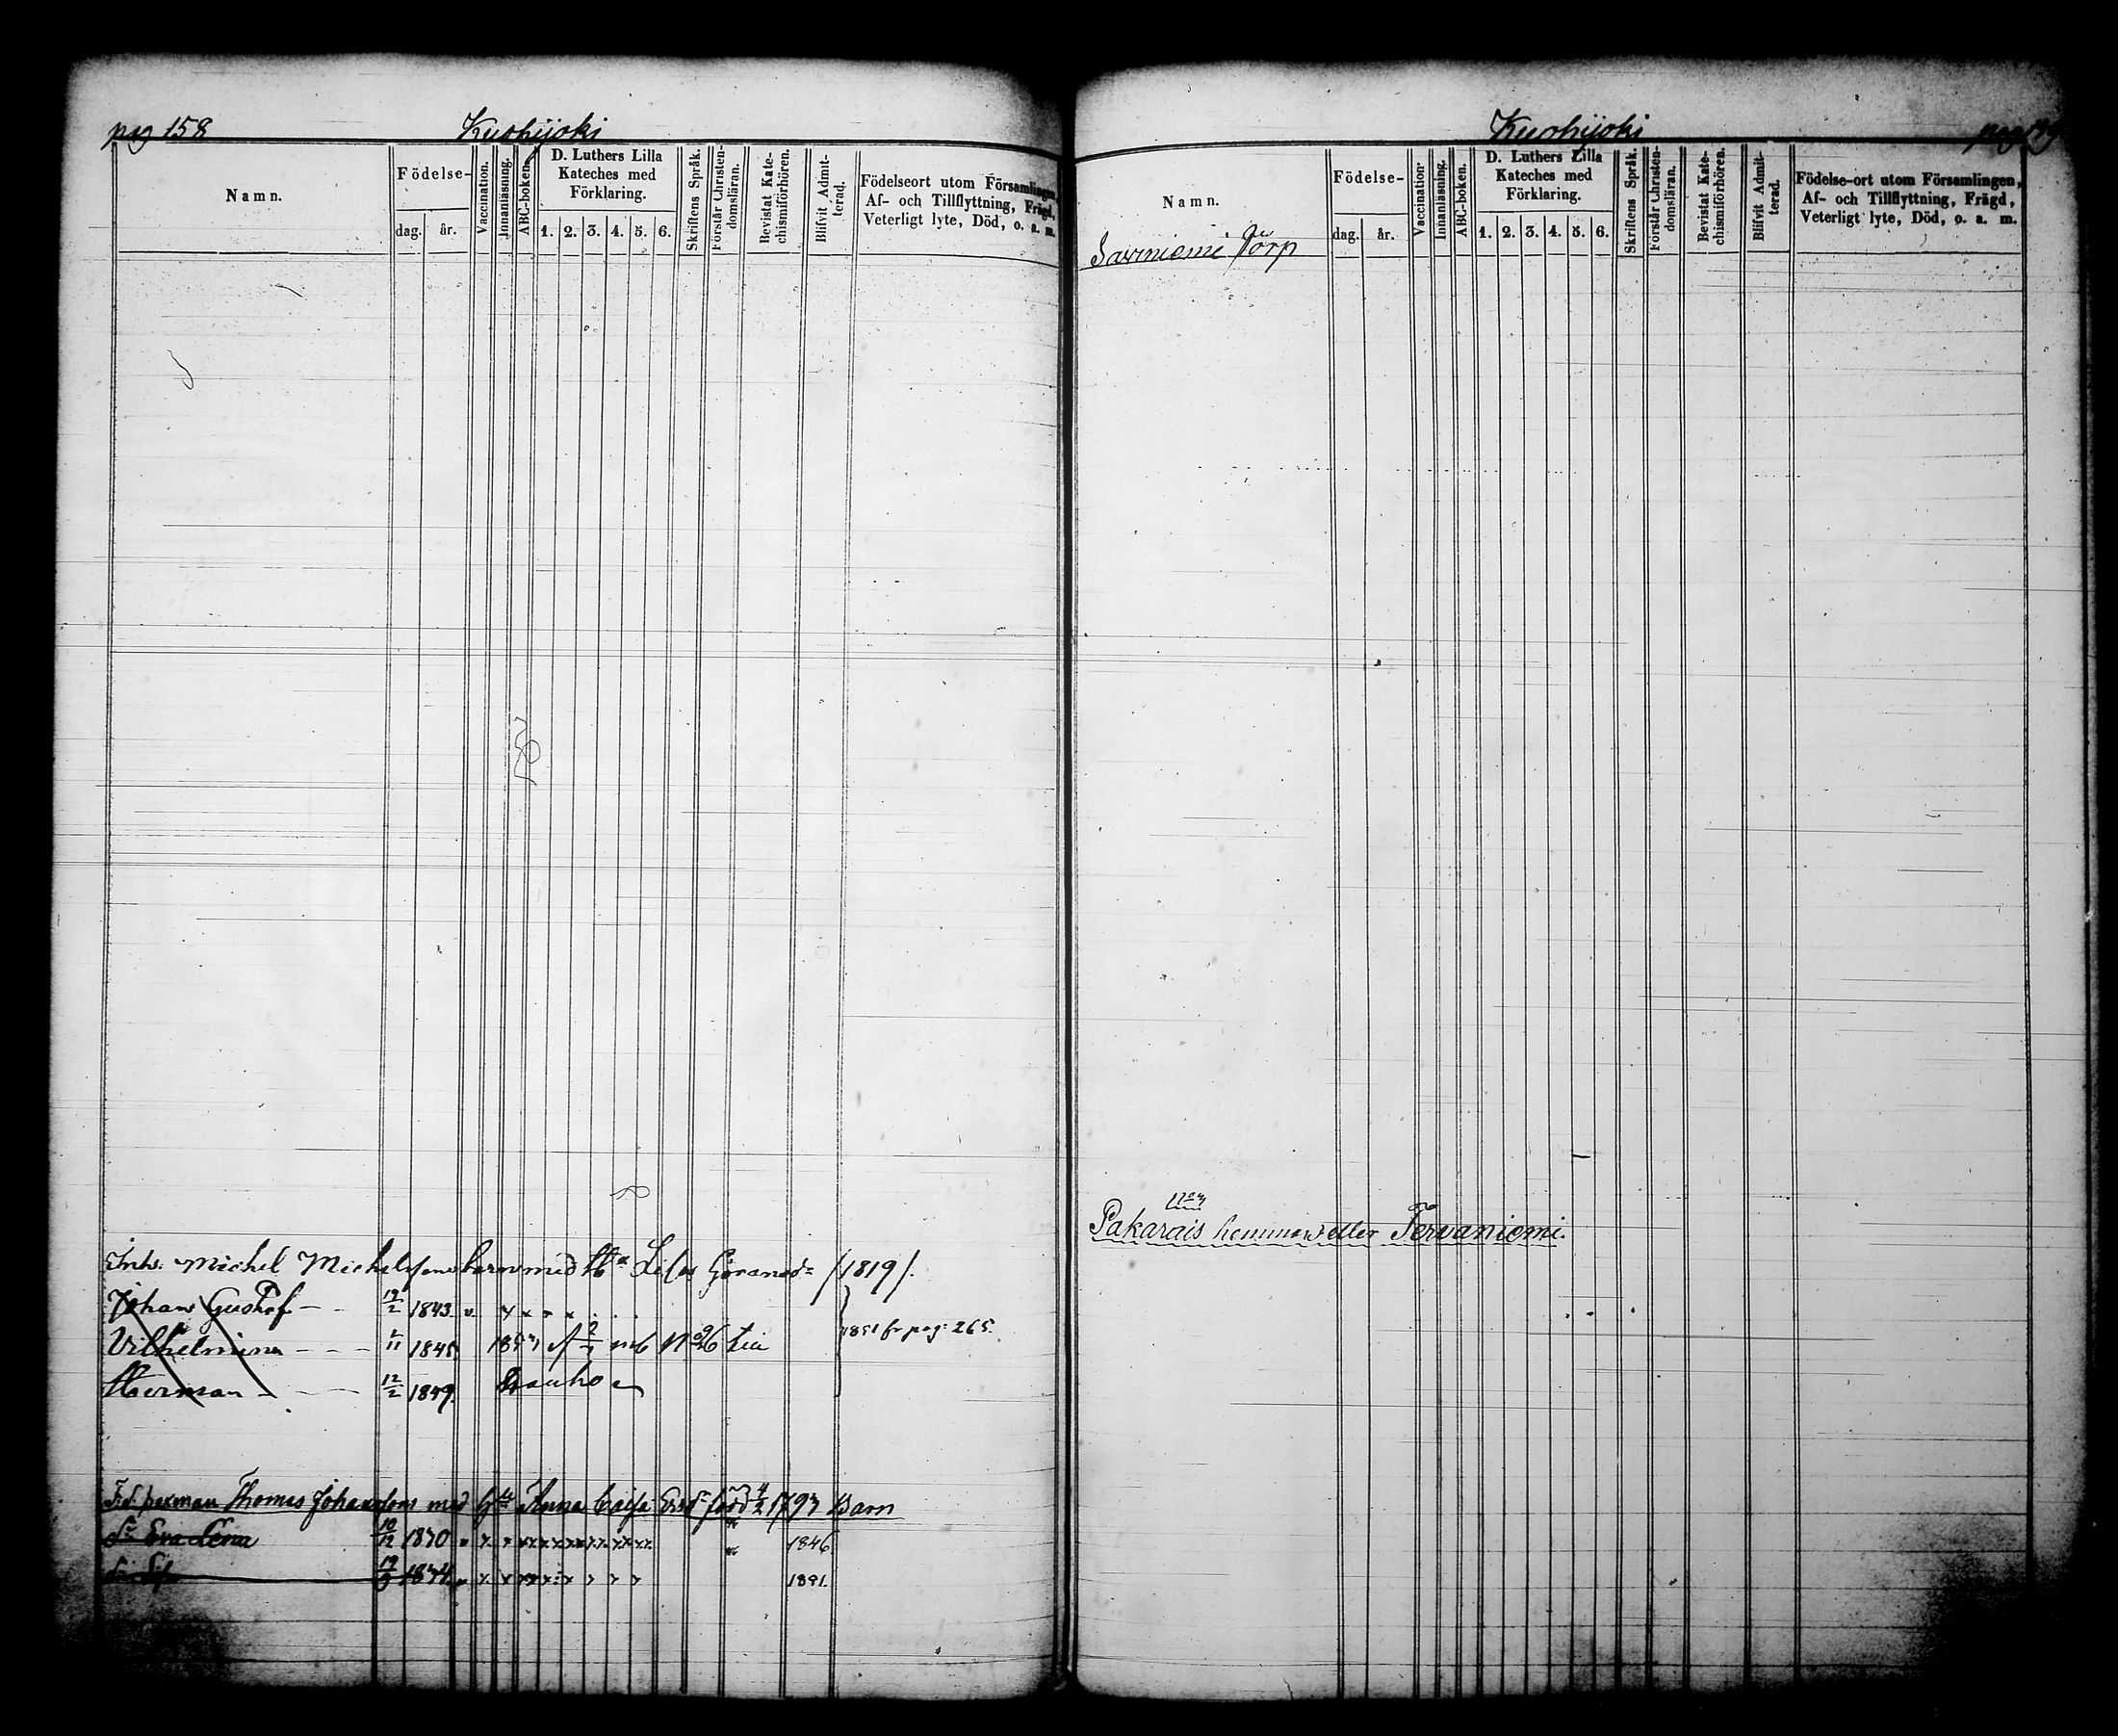 pag 158 Kuohijoki
Namn. Födelse- dag. år. Vaccination. Innanläsning. ABC-boken. D. Luthers Lilla Kateches med Förklaring. 1. 2. 3. 4. 5. 6. Skriftens Språk. Förstår Christen-domsläran. Bevistat Kate-chismiförhören. Blifvit Admit-terad. Födelseort utom Församlingen, Af- och Tillflyttning, Frägd, Veterligt lyte, Död, o. a. m.
Inhs. Michel Michelsons barn med Lisa Göransd:r /1819/.
Johan Gustaf 1843. v
Vilhelmina 1845
1851 fr pag: 265.
Herman 12/2 1849. Hauho
Thomas Johansons med Anna Caisa född Barn
Eva Lena 10/12 1846
19/9 1851.
Kuohijoki
Namn. Födelse- dag. år. Vaccination. Innanläsning. ABC-boken. D. Luthers Lilla Kateches med Förklaring. 1. 2. 3. 4. 5. 6. Skriftens Språk. Förstår Christen-domsläran. Bevistat Kate-chismiförhören. Blifvit Admit-terad. Födelse-ort utom Församlingen, Af- och Tillflyttning, Frägd, Veterligt lyte, Död, o. a. m.
Saviniemi Torp
Pakarais hemman eller Tervaniemi.